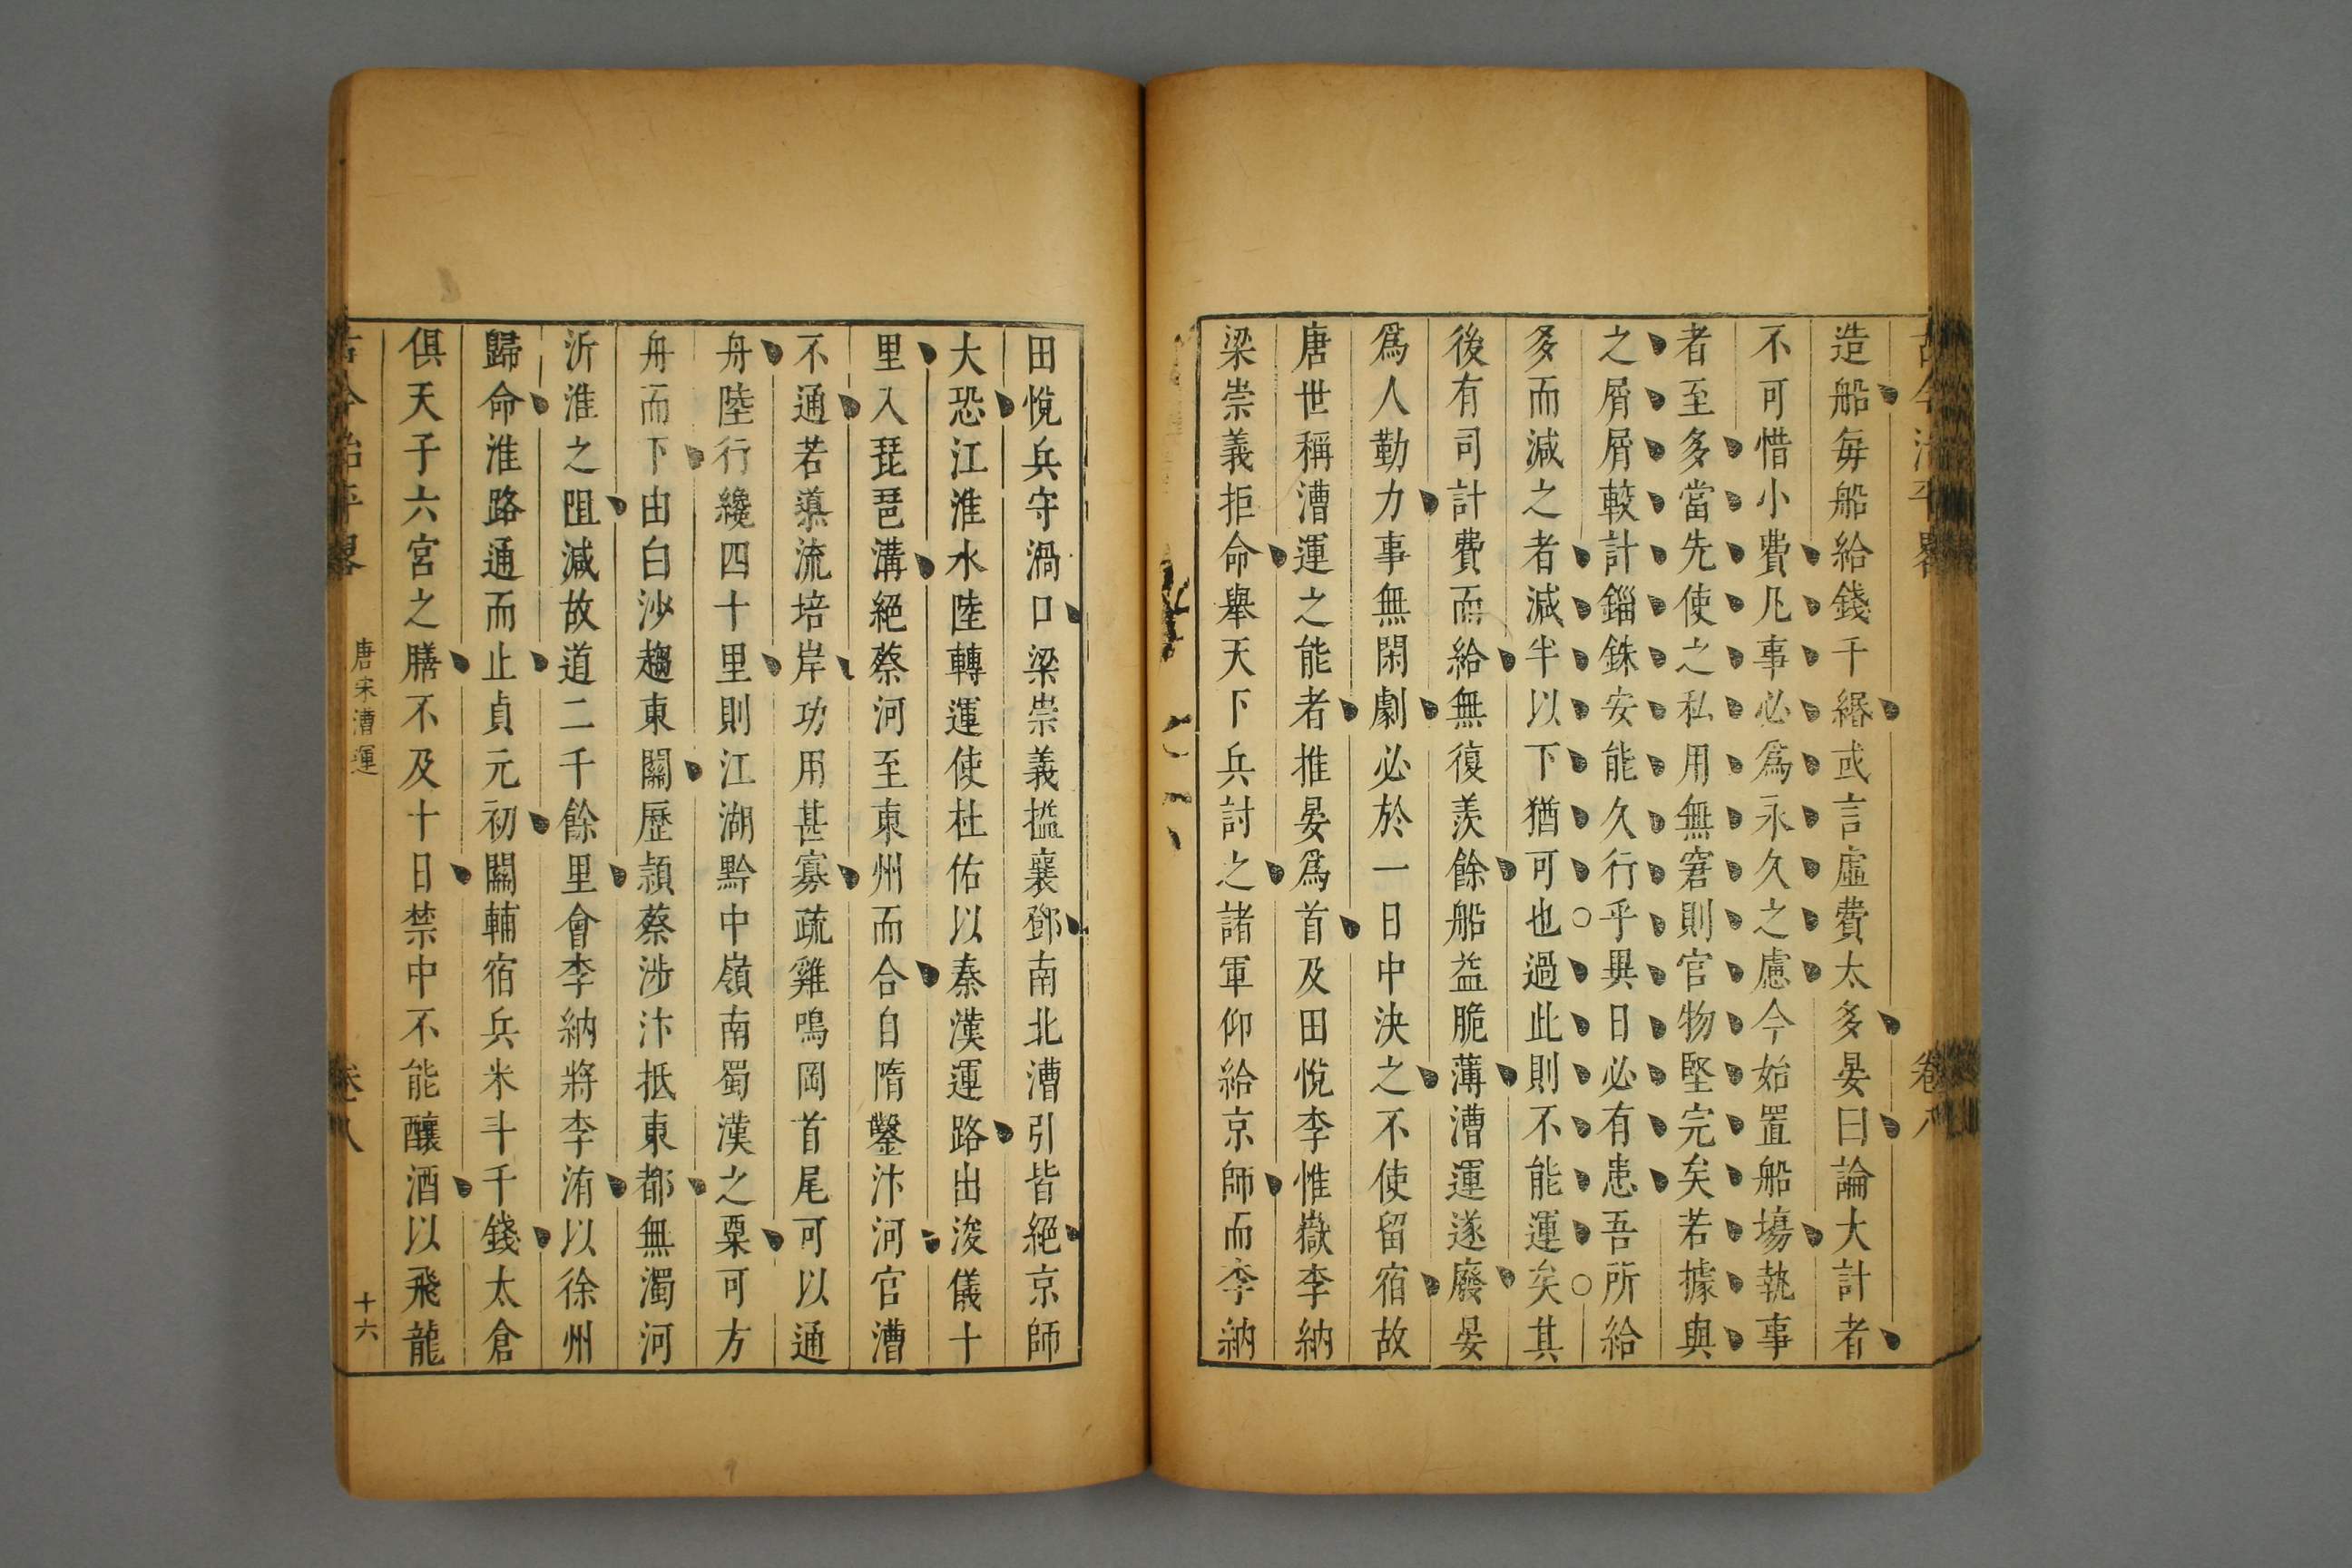 造船每船給錢千緡或言虛費太多晏曰論大計者
不可惜小費凡事必爲永久之慮今始置船場執事
者至多當先使之私用無窘則官物堅完矣若據與
之屑屑較計錙銖安能久行乎異日必有患吾所給
多而減之者減半以下猶可也過此則不能運矣其
後有司計費而給無復羨餘船益脆薄漕運遂廢晏
爲人勤力事無閑劇必於一日中決之不使留宿故
唐世稱漕運之能者推晏爲首及田悅李惟嶽李納
梁崇義拒命舉天下兵討之諸軍仰給京師而李納
田悅兵守渦口梁崇義搤襄鄧南北漕引皆絕京師
大恐江淮水陸轉運使杜佑以秦漢運路出浚儀十
里入琵琶溝絕蔡河至東州而合自隋鑿汴河官漕
不通若導流培岸功用甚寡疏雞鳴岡首尾可以通
舟陸行纔四十里則江湖黔中嶺南蜀漢之粟可方
舟而下由白沙趨東關歷潁蔡涉汴抵東都無濁河
泝淮之阻減故道二千餘里會李納將李洧以徐州
歸命淮路通而止貞元初關輔宿兵米斗千錢太倉
俱天子六宮之膳不及十日禁中不能釀酒以飛龍
古今治平畧
唐宋漕運
卷八
十六